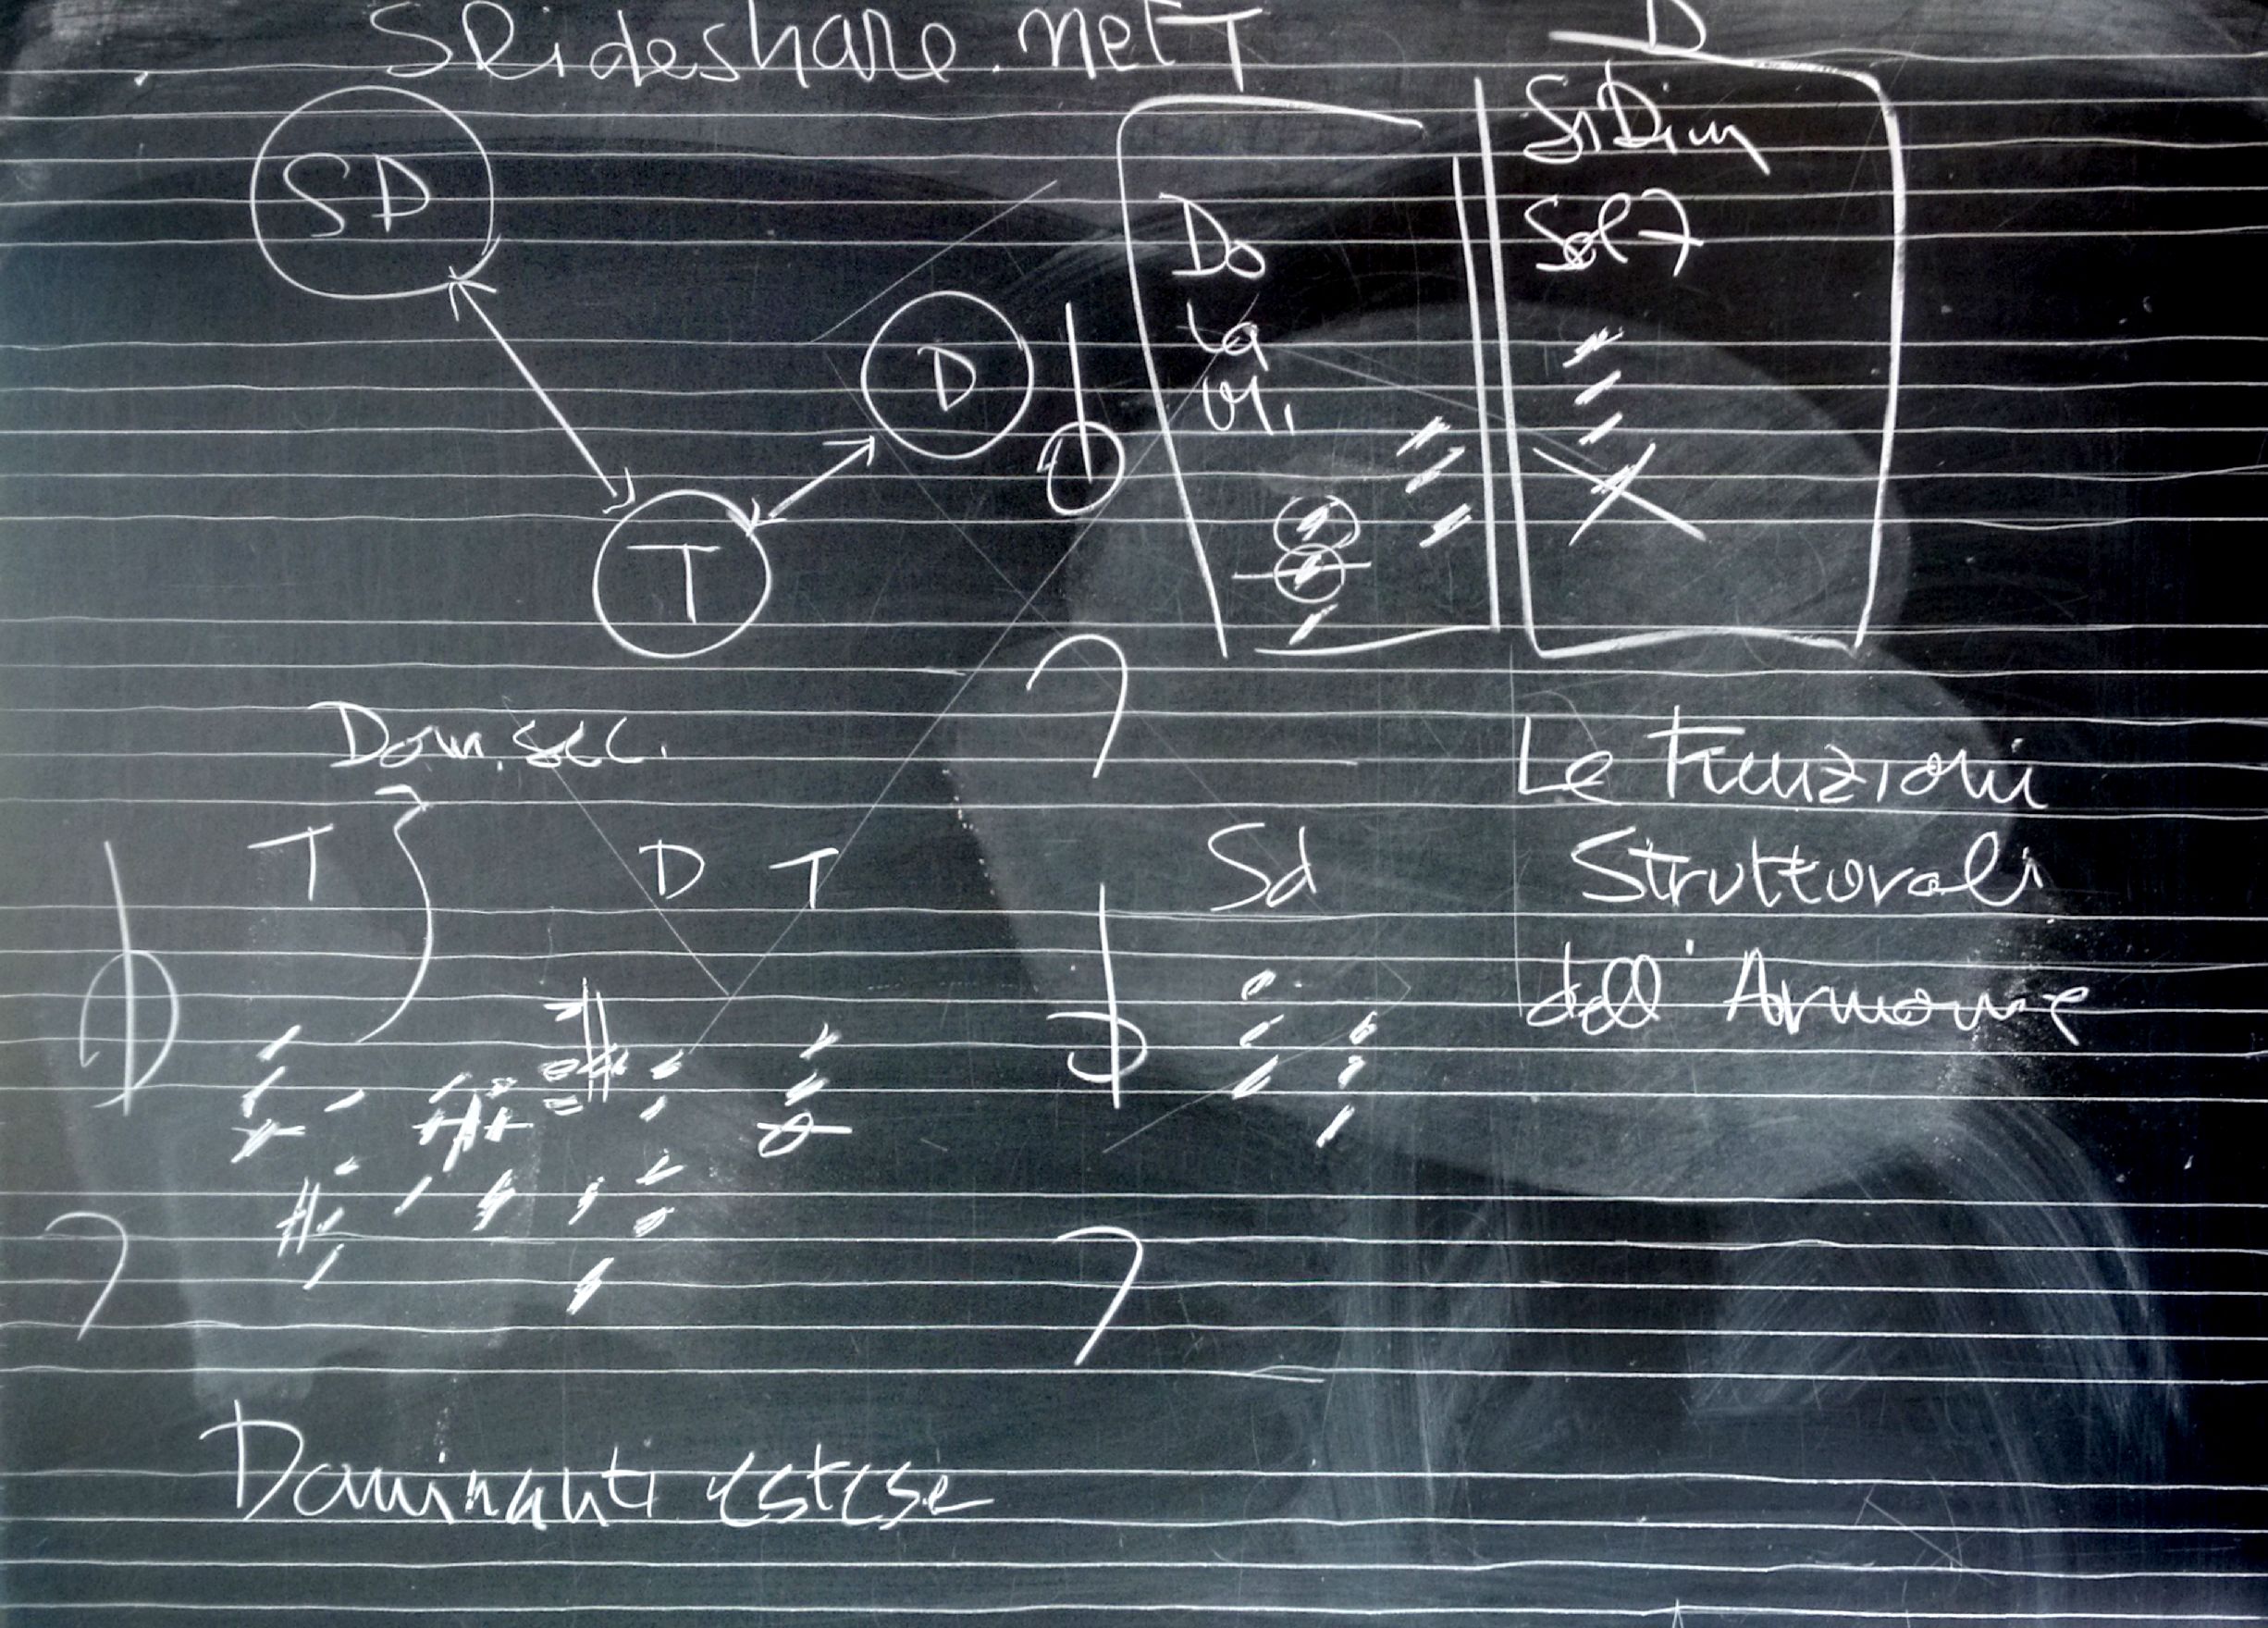 Slideshare.net T D
SD
D
T
Si Dim
Do
Sol 7
La
Mi
Dom. sec.
T
D T
Sd
Le Funzioni
Strutturali
dell'Armonie
Dominanti estese